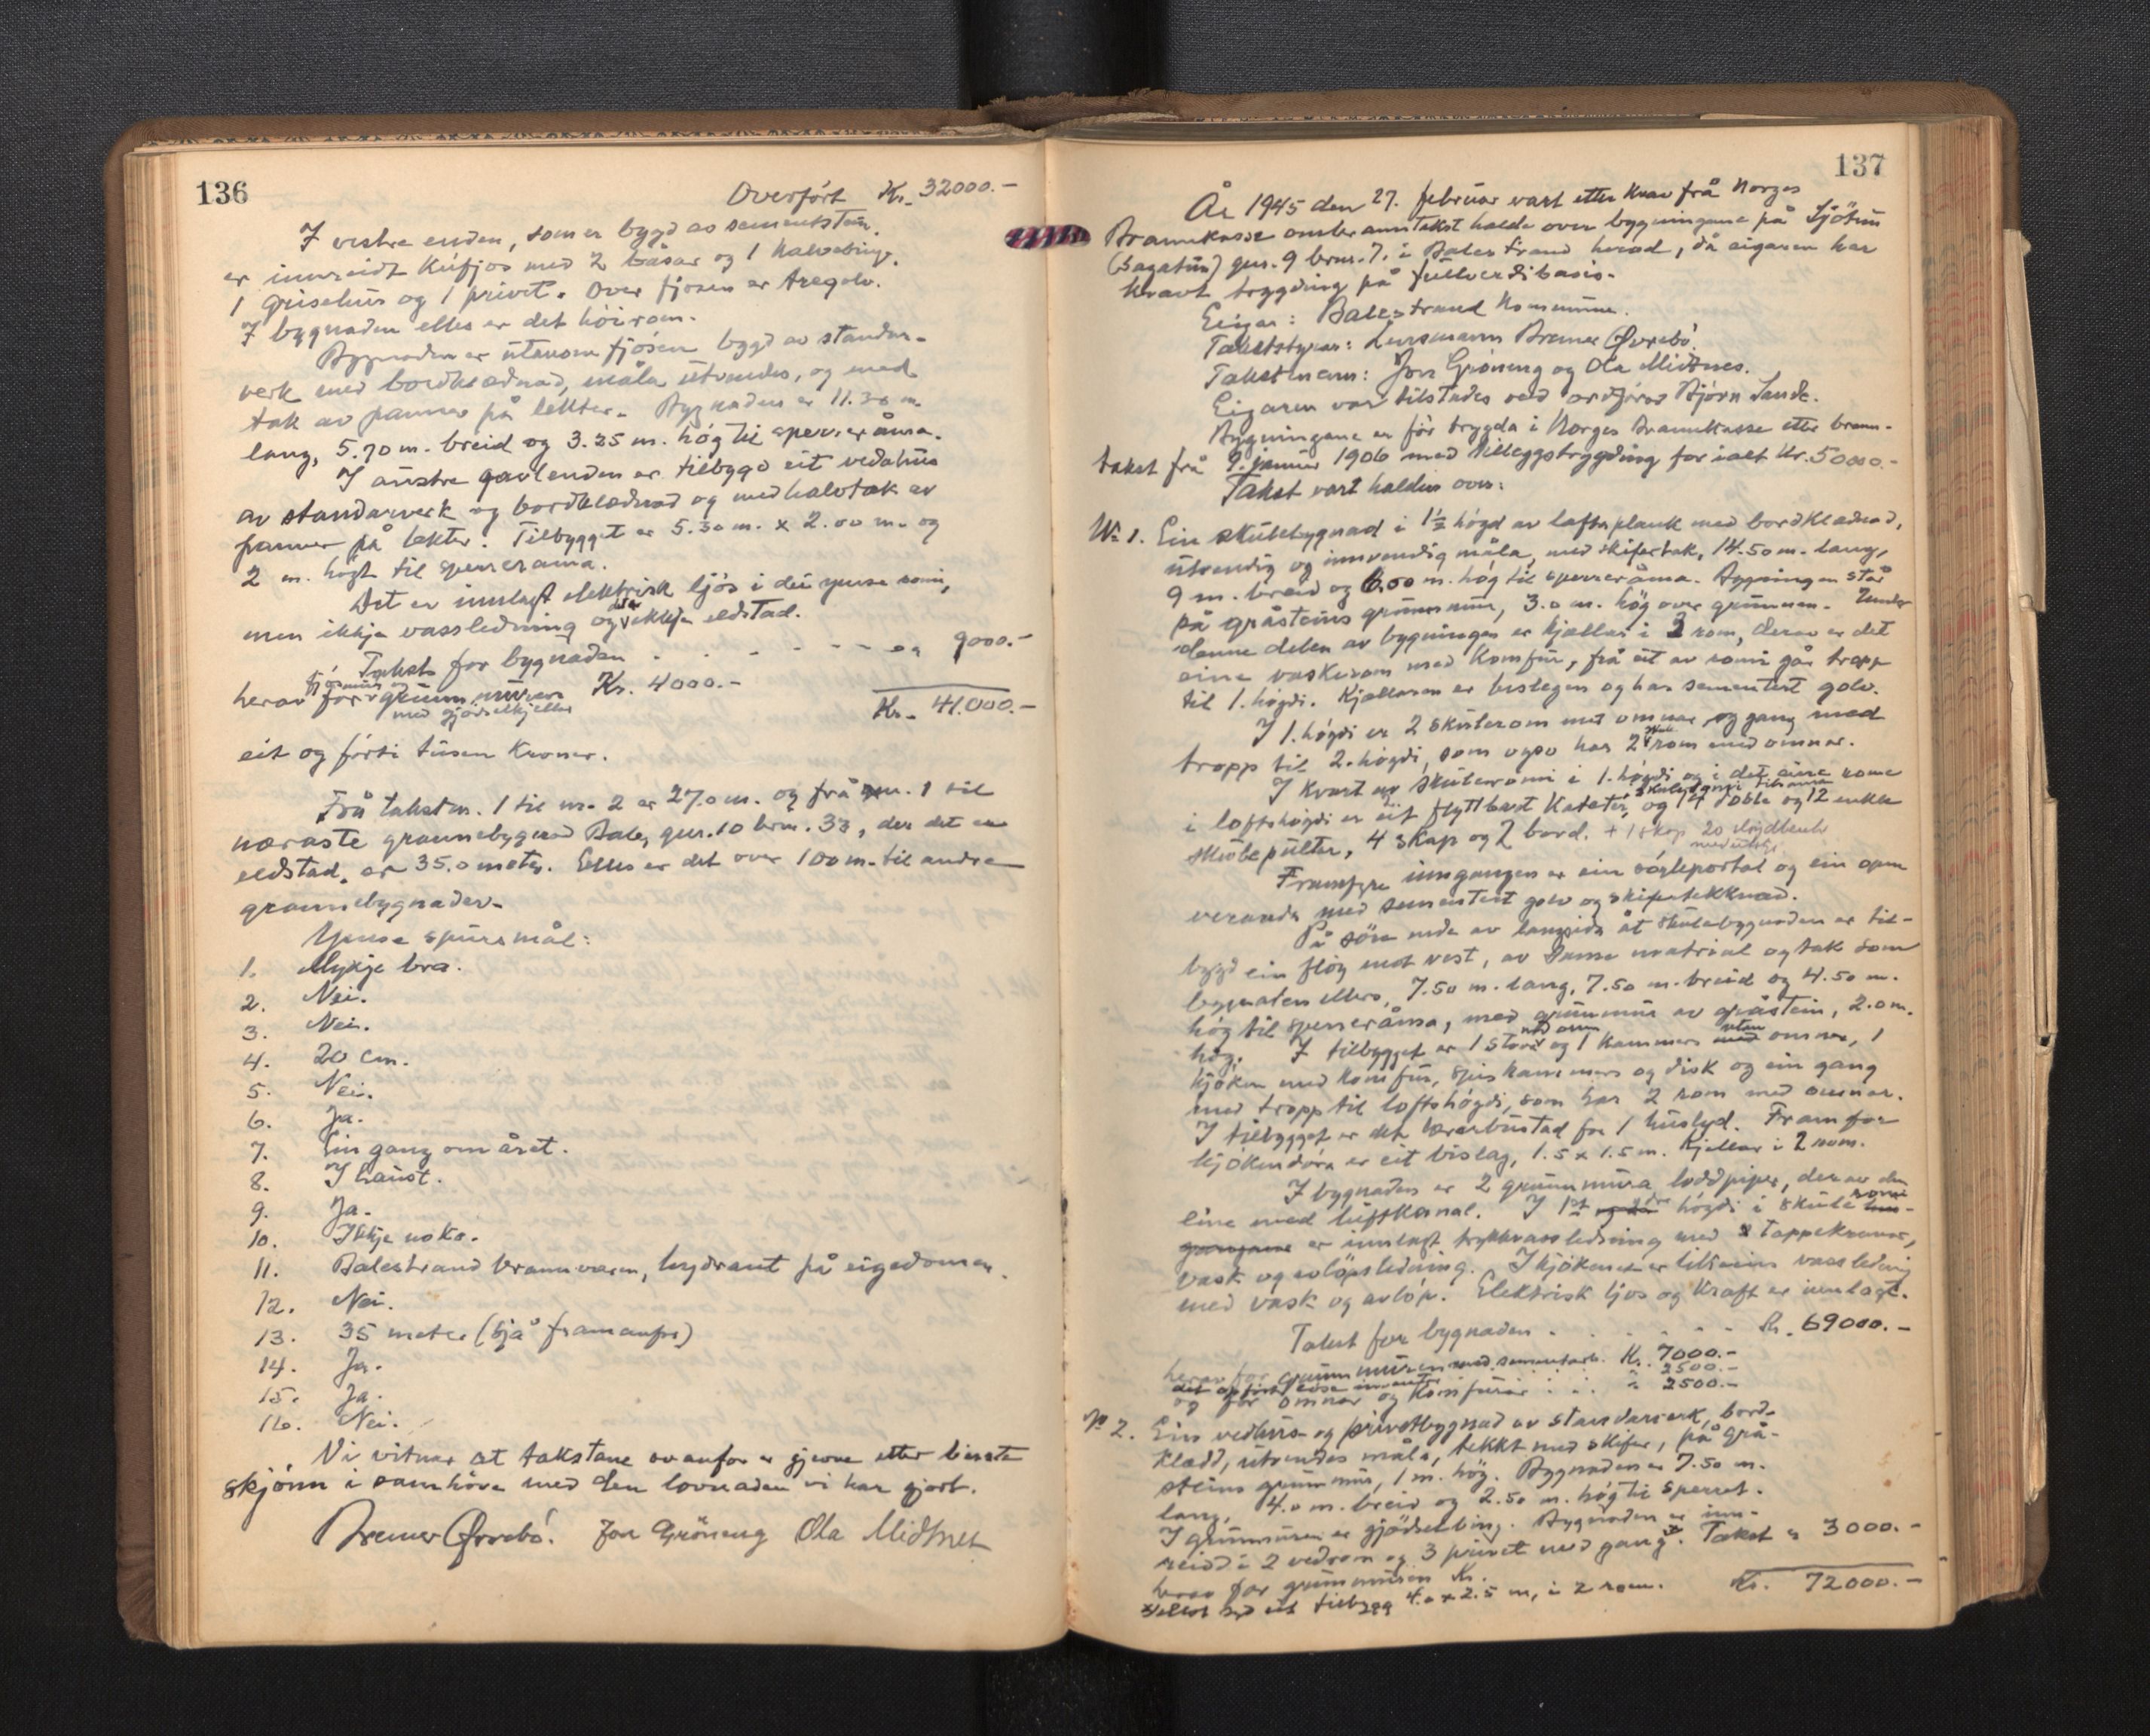 136
Overført Kr. 32000.-
I vestre enden, som er bygd av sementstein,
er innreidt kufjos med 2 båsar og 1 kalvebinge,
1 grisehus og 1 privet. Over fjosen er tregolv.
I bygnaden elles er det höirom.
Bygnaden er utanom fjosen bygd av standar-
verk med bordklædnad, måla utvendes, og med
tak av pannor på lekter. Bygnaden er 11.30 m.
lang, 5.70 m. breid og 3.25 m. høg til sperreråma.
I austre gavlenden er tilbygd eit vedahus
av standarverk og bordklædnad og med halvtak av
pannor på lekter. Tilbygget er 5.30 m. x 2.00 m. og
2 m. høgt til sperreråma.
Det er innlagt elektrisk ljos i dei ymse romi,
men ikkje vassledning og det er ikkje eldstad.
Takst for bygnaden . . . . . . " 9000.-
herav for fjósmur og grunnmuren Kr. 4000.-
med gjødselkjellar
Kr. 41.000.-
eit ogførti tusen kroner.
Frå takstnr. 1 til nr. 2 er 27.0 m. og frå nr. 1 til
næraste grannebygnad Bale, gnr. 10 brnr. 33, der det er
eldstad, er 35.0 meter. Elles er det over 100 m. til andre
grannebygnader.
Ymse spursmål:
1. Mykje bra.
2. Nei.
3. Nei.
4. 20 cm.
5. Nei.
6. Ja.
7. Ein gang om året.
8. I haust.
9. Ja.
10. Ikkje noko.
11. Balestrand brannvæsen, hydrant på eigedomen.
12. Nei.
13. 35 meter (sjå framanfor)
14. Ja.
15. Ja.
16. Nei.
Vi vitnar at takstane ovanfor er gjevne etter beste
skjönn i samhöve med den lovnaden vi har gjort.
Bremer Øvrebó. Jon Gröneng Ola Midtnes
137
År 1945 den 27. februar vart etter krav frå Norges
Brannkasse ombranntakst halde over bygningane på Sjötun
(Sagatun) gnr. 9 brnr. 7. i Balestrand herad, då eigaren har
kravt trygding på fullverdibasis.
Eigar: Balestrand kommune.
Takststyrar: Lensmann Bremer Øvrebó.
Takstmenn: Jon Gröneng og Ola Midtnes.
Eigaren var tilstades ved ordförar Björn Sande.
Bygningane er för trygda i Norges Brannkasse etter brann-
takst frå 9. januar 1906 med tilleggstrygding for ialt Kr. 50000.-
Takst vart halden over:
Nr. 1. Ein skulebygnad i 1½ högd av lafta plank med bordklædnad,
utvendig og innvendig måla, med skifertak, 14.50 m. lang,
9 m. breid og 6.00 m. høg til sperreråma. Bygningen står
på gråsteins grunnmur, 3.0 m. høg over grunnen. Under
denne delen av bygningen er kjellar i 3 rom, derav er det
eine vaskerom med komfur, frå eit av romi går tropp
til 1. högdi. Kjellaren er beslegen og har sementert golv.
I 1. högdi er 2 skulerom med omnar, og gang med
tropp til 2. högdi, som også har 2 rom med omnar.
I kvart av skuleromi i 1. högdi og i det eine rome
i loftshögdi er eit flyttbart kateter, og 14 doble og 12 enkle
skulepultar, 4 skap og 2 bord. + 1 skap 20 slöjdbenker
Framfyre inngangen er ein söyleportal og ein open
veranda med sementert golv og skifertekknad.
På söre enda av langsida åt skulebygnaden er til-
bygd ein flöy mot vest, av same matrial og tak som
bygnaden elles, 7.50 m. lang, 7.50 m. breid og 4.50 m.
høg til sperreråma, med grunnmur av gråstein, 2.0 m.
høg. I tilbygget er 1 stove med omn og 1 kammers utan omnar, 1
kjöken med komfur, spiskammers og disk og ein gang
med tropp til loftshögdi, som har 2 rom med omnar.
I tilbygget er det lærarbustad for 1 huslyd. Framfor
kjökendöra er eit bislag, 1.5 x 1.5 m. Kjellar i 2 rom.
I bygnaden er 2 grunnmura loddpiper, derav den
eine med luftkanal. I 1st og 2dre högdi i skule romi
gangane er innlagt trykkvassledning med 2 tappekranar,
vask og avlöpsledning. I kjökenet er likeeins vassledning
med vask og avlöp. Elektrisk ljos og kraft er innlagt.
Takst for bygnaden . . . . . . Kr. 69000.-
herav for grunnmuren med sementarb. Kr. 7000.-
" 2500.-
og for omnar og komfurar . . . " 2500.-
Nr 2. Ein vedhus og privetbygnad av standarverk, bord-
klædd, utvendes måla, tekkt med skifer, på grå-
steins grunnmur, 1 m. høg. Bygnaden er 7.50 m.
lang, 4.0 m. breid og 2.50 m. høg til sperret.
I grunnmuren er gjödselbinge. Bygnaden er inn-
reidd i 2 vedrom og 3 privet med gang. Takst " 3000.-
herav for grunnmuren Kr.
eit tilbygg 4.0 x 2.5 m, i 2 rom. Kr. 72000.-